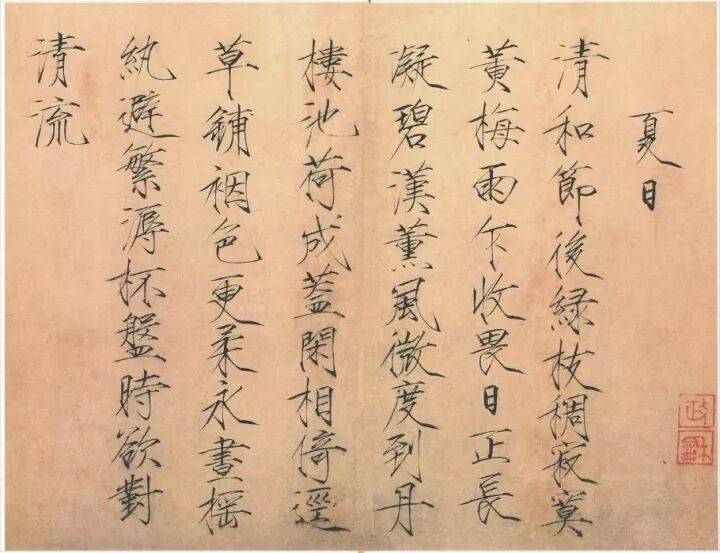 夏日
清和節後緑枝稠寂寞
黄梅雨乍收畏日正長
凝碧漢薰風微度到丹
樓池荷成蓋閑相倚逕
草鋪裀色更柔永晝搖
紈避繁溽杯盤時欲對
清流
政
龢